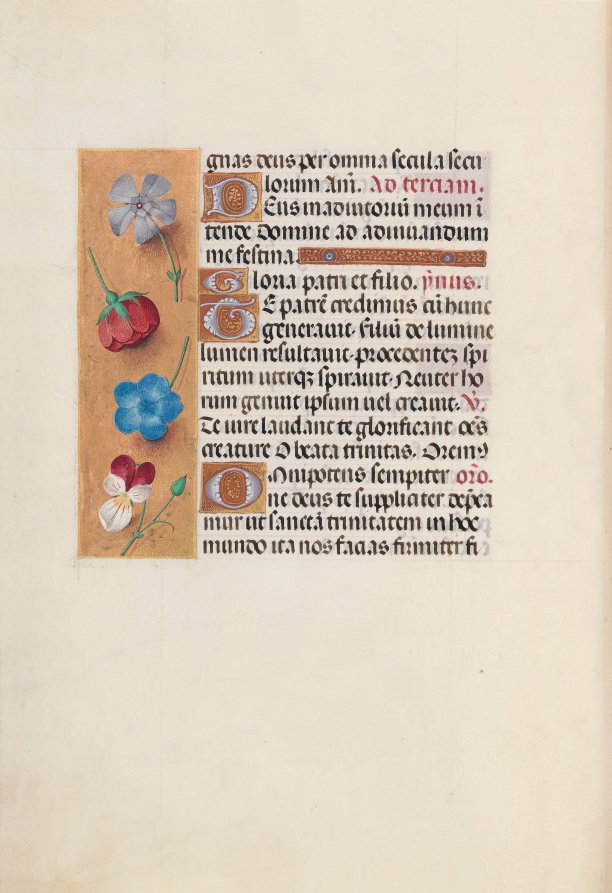 gnas deus per omnia secula secu
lorum Am̄. Ad terciam.
Deus in adiutoriū meum ī
tende Domine ad adiuuandum
me festina.
Gloria patri et filio. ẏnus.
Te patrē credimus cū hunc
generauit. filiū de lumine
lumen resultauit. procedentez spi
ritum uterqz spirauit. Neuter ho
rum genuit ipsum uel creauit. V̄.
Te iure laudant te glorificant oēs
creature O beata trinitas. Orem9
Omnipotens sempiter orō.
ne deus te suppliciter depca
mur ut sanctā trinitatem in hoc
mundo ita nos facias firmiter fi